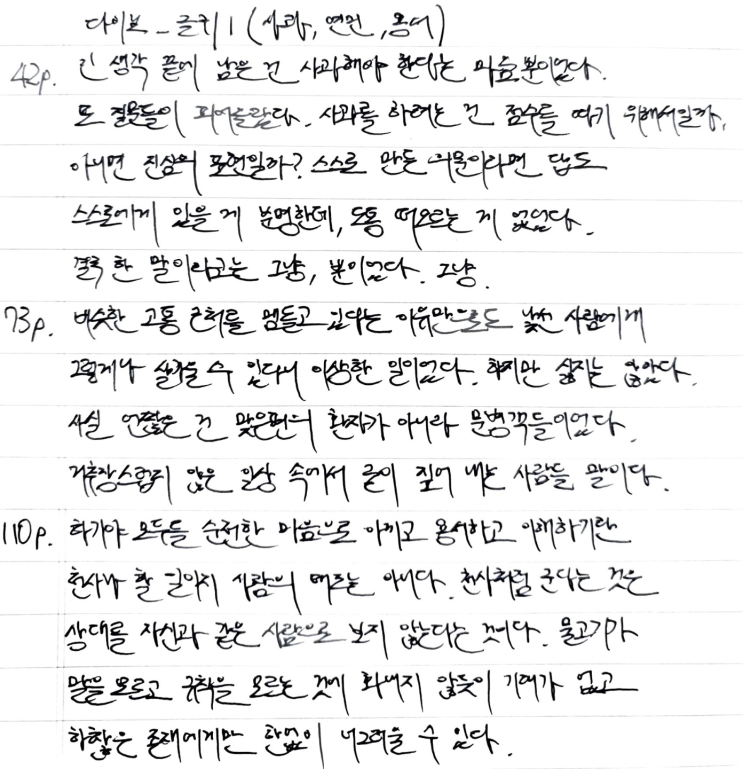 다이브 - 글귀 1 (사과, 연민, 용서)
42p. 긴 생각 끝에 남은 건 사과해야 한다는 마음뿐이었다.
또 질문들이 피어올랐다. 사과를 하려는 건 점수를 따기 위해서일까,
아니면 진심의 표현일까? 스스로 만든 의문이라면 답도
스스로에게 있을 게 분명한데, 도통 떠오르는 게 없었다.
결국 한 말이라고는 그냥, 뿐이었다. 그냥.
73p. 비슷한 고통 근처를 맴돌고 있다는 이유만으로도 낯선 사람에게
그렇게나 살가울 수 있다니 이상한 일이었다. 하지만 싫지는 않았다.
사실 언짢은 건 맞은편의 환자가 아니라 문병객들이었다.
거추장스럽지 않은 일상 속에서 굳이 짚어 내는 사람들 말이다.
110p. 하기야 모두를 순전한 마음으로 아끼고 용서하고 이해하기란
천사나 할 일이지 사람의 매조는 아니다. 천사처럼 군다는 것은
상대를 자신과 같은 사람으로 보지 않는다는 것이다. 물고기가
말을 모르고 규칙을 모르는 것에 화내지 않듯이 기대가 없고
하찮은 존재에게만 한없이 너그러울 수 있다.